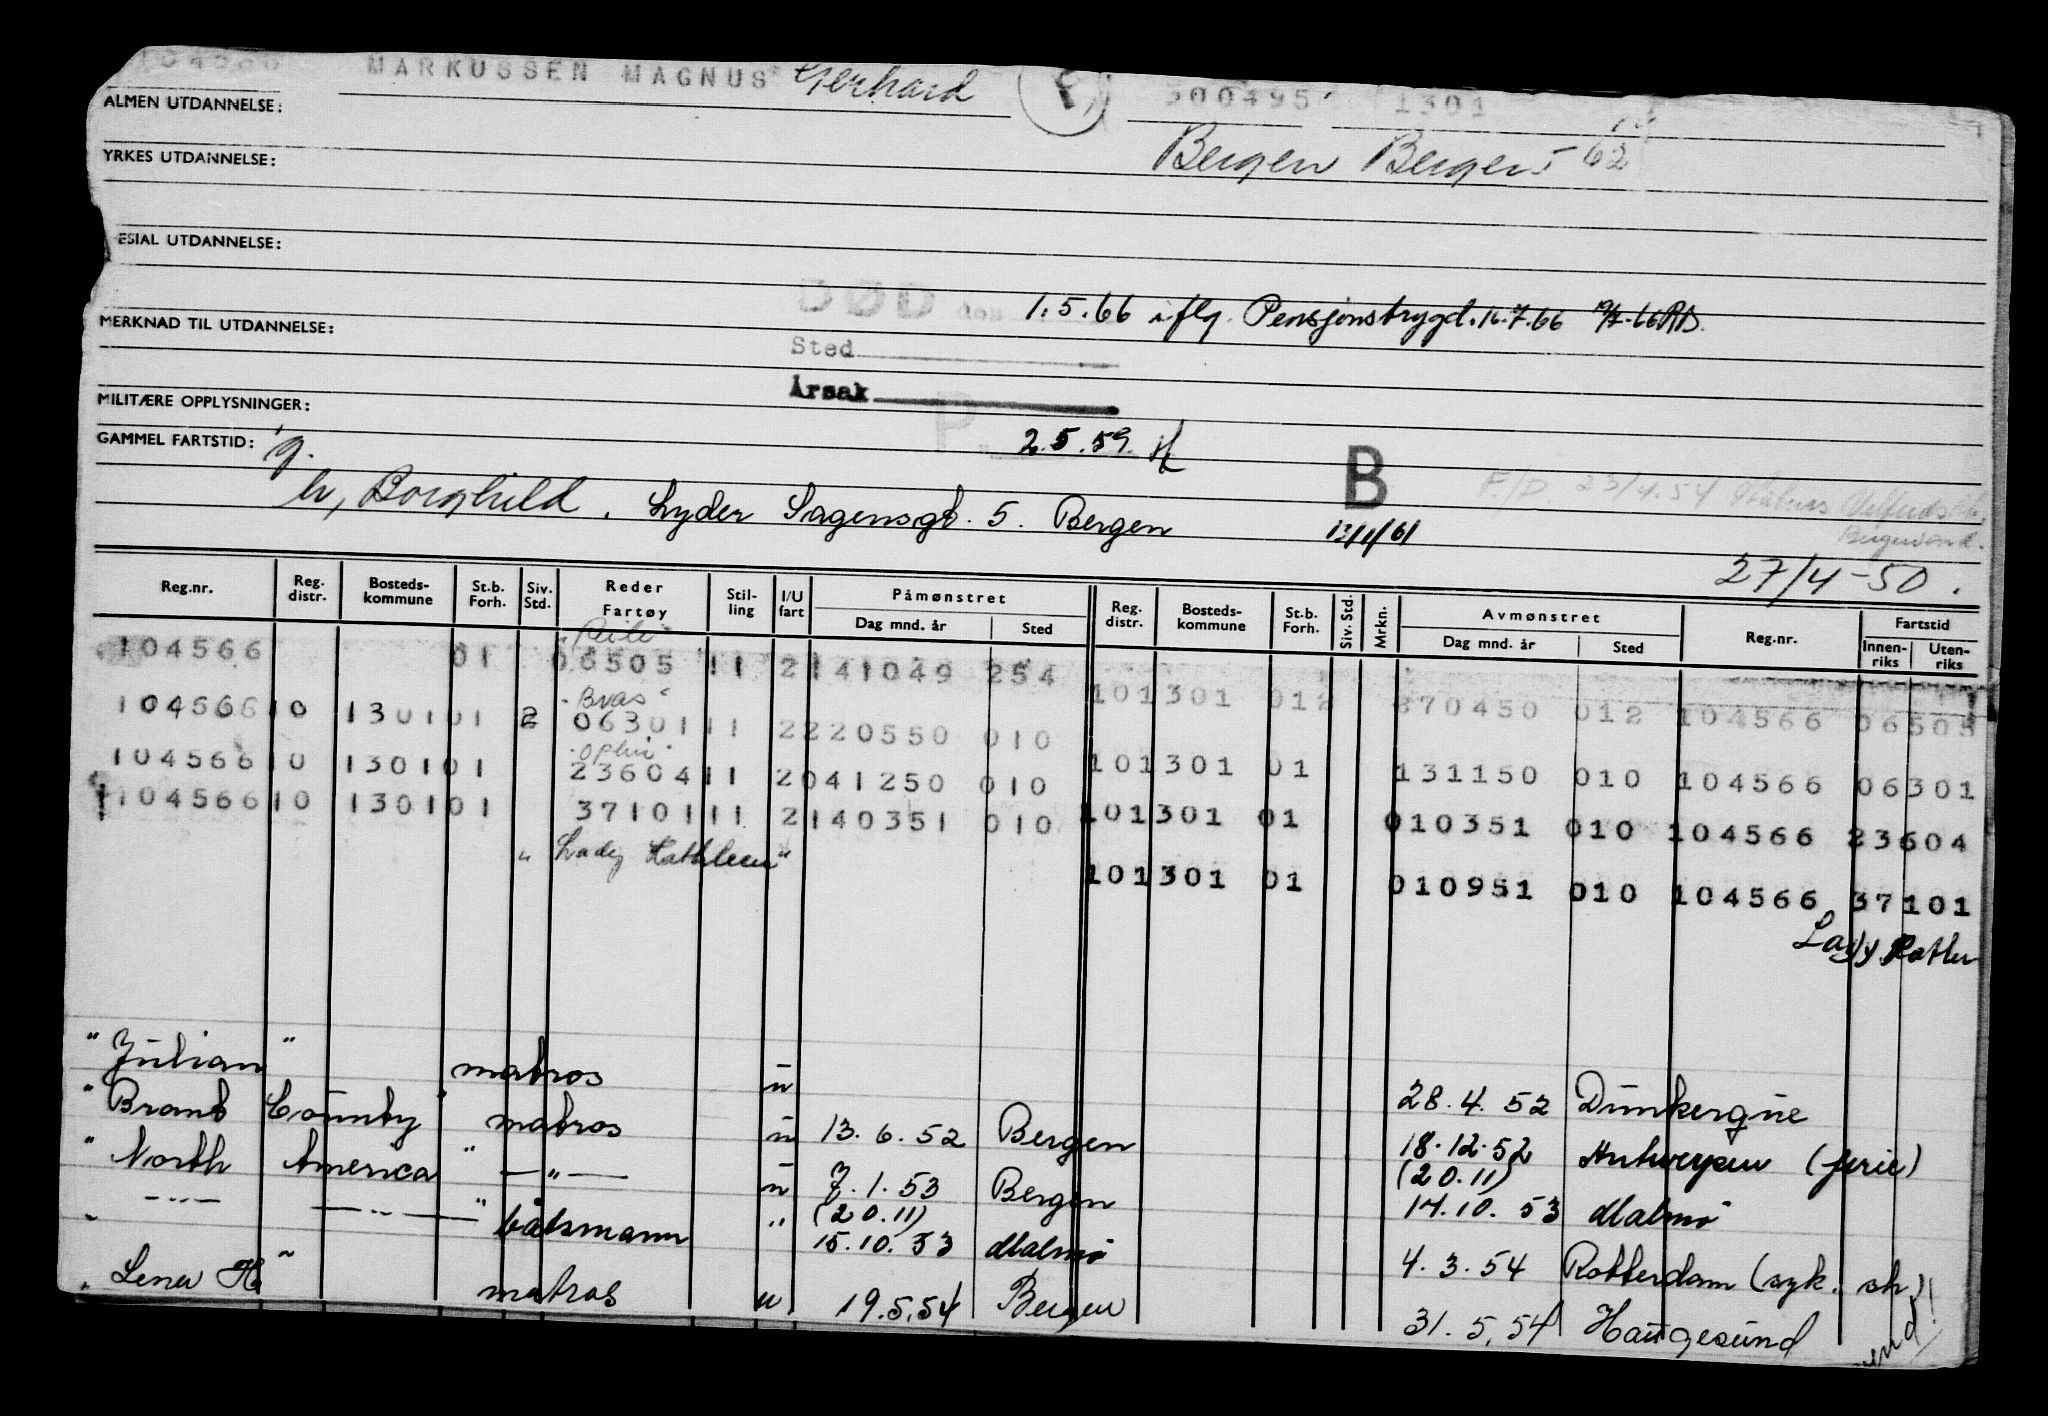 104566 MARKUSSEN MAGNUS Gerhard 300495 1301
ALMEN UTDANNELSE:
Bergen Bergen 62
YRKES UTDANNELSE:
ESIAL UTDANNELSE:
DØD den 1.5.66 iflg. Pensjonstrygd. 16.7.66
MERKNAD TIL UTDANNELSE:
Sted
Årsak
MILITÆRE OPPLYSNINGER:
GAMMEL FARTSTID: g. P. 2.5.59. B
h, Borghild. Lyder Sagensgt. 5. Bergen 13/11/61
F./p. 23/4.54
27/4-50.
Reg.nr. Reg. distr. Bosteds-kommune St.b. Forh. Siv. Std. Reder Fartøy Stil-ling I/U fart Påmønstret Dag mnd. år Sted Reg. distr. Bosteds-kommune St.b. Forh. Siv. Std. Mrkn. Avmønstret Dag mnd. år Sted Reg.nr. Fartstid Innen-riks Uten-riks
104566 01 06505 11 2 141049 254
101301 012 270450 012 104566 06505
"Bras"
104566 10 1301 01 2 06301 11 2 220550 010
101301 01 131150 010 104566 06301
"Ophir"
104566 10 1301 01 23604 11 2 041250 010
101301 01 010351 010 104566 23604
104566 10 1301 01 37101 11 2 140351 010
"Lady Kathleen"
101301 01 010951 010 104566 37101
"Julian" matros u 28.4.52 Dunkerque
"Brant County" matros u 13.6.52 Bergen 18.12.52 Antwerpen (ferie)
(20.11)
"North America" —"— u 7.1.53 Bergen 14.10.53 Malmø
(20.11)
—"— —"— båtsmann " 15.10.53 Malmø 4.3.54 Rotterdam (syk. sh)
"Lena H" matros u 19.5.54 Bergen 31.5.54 Haugesund
vend!